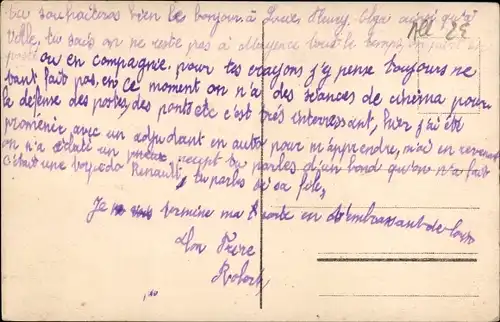 Tu souhaiteras bien le bonjour à Louis, Henry, Olga ainsi qu'à
ville, tu sais on ne reste pas à Mayence tout le temps on
All 22
ou en compagnie. pour tes crayons j'y pense toujours ne
t'en fait pas, en ce moment on n'a des séances de cinéma pour
la défense des postes, des ponts etc c'est très interressant, hier j'ai été
promènir avec un adjudant en auto pour m'apprendre, mais en revenant
on n'a éclaté un pneu, tu parles d'un bond qu'on n'a fait
c'était une torpedo Renault, tu parles si sa file,
Je termine ma carte en t'embrassant de loin
Ton Frère
Robert